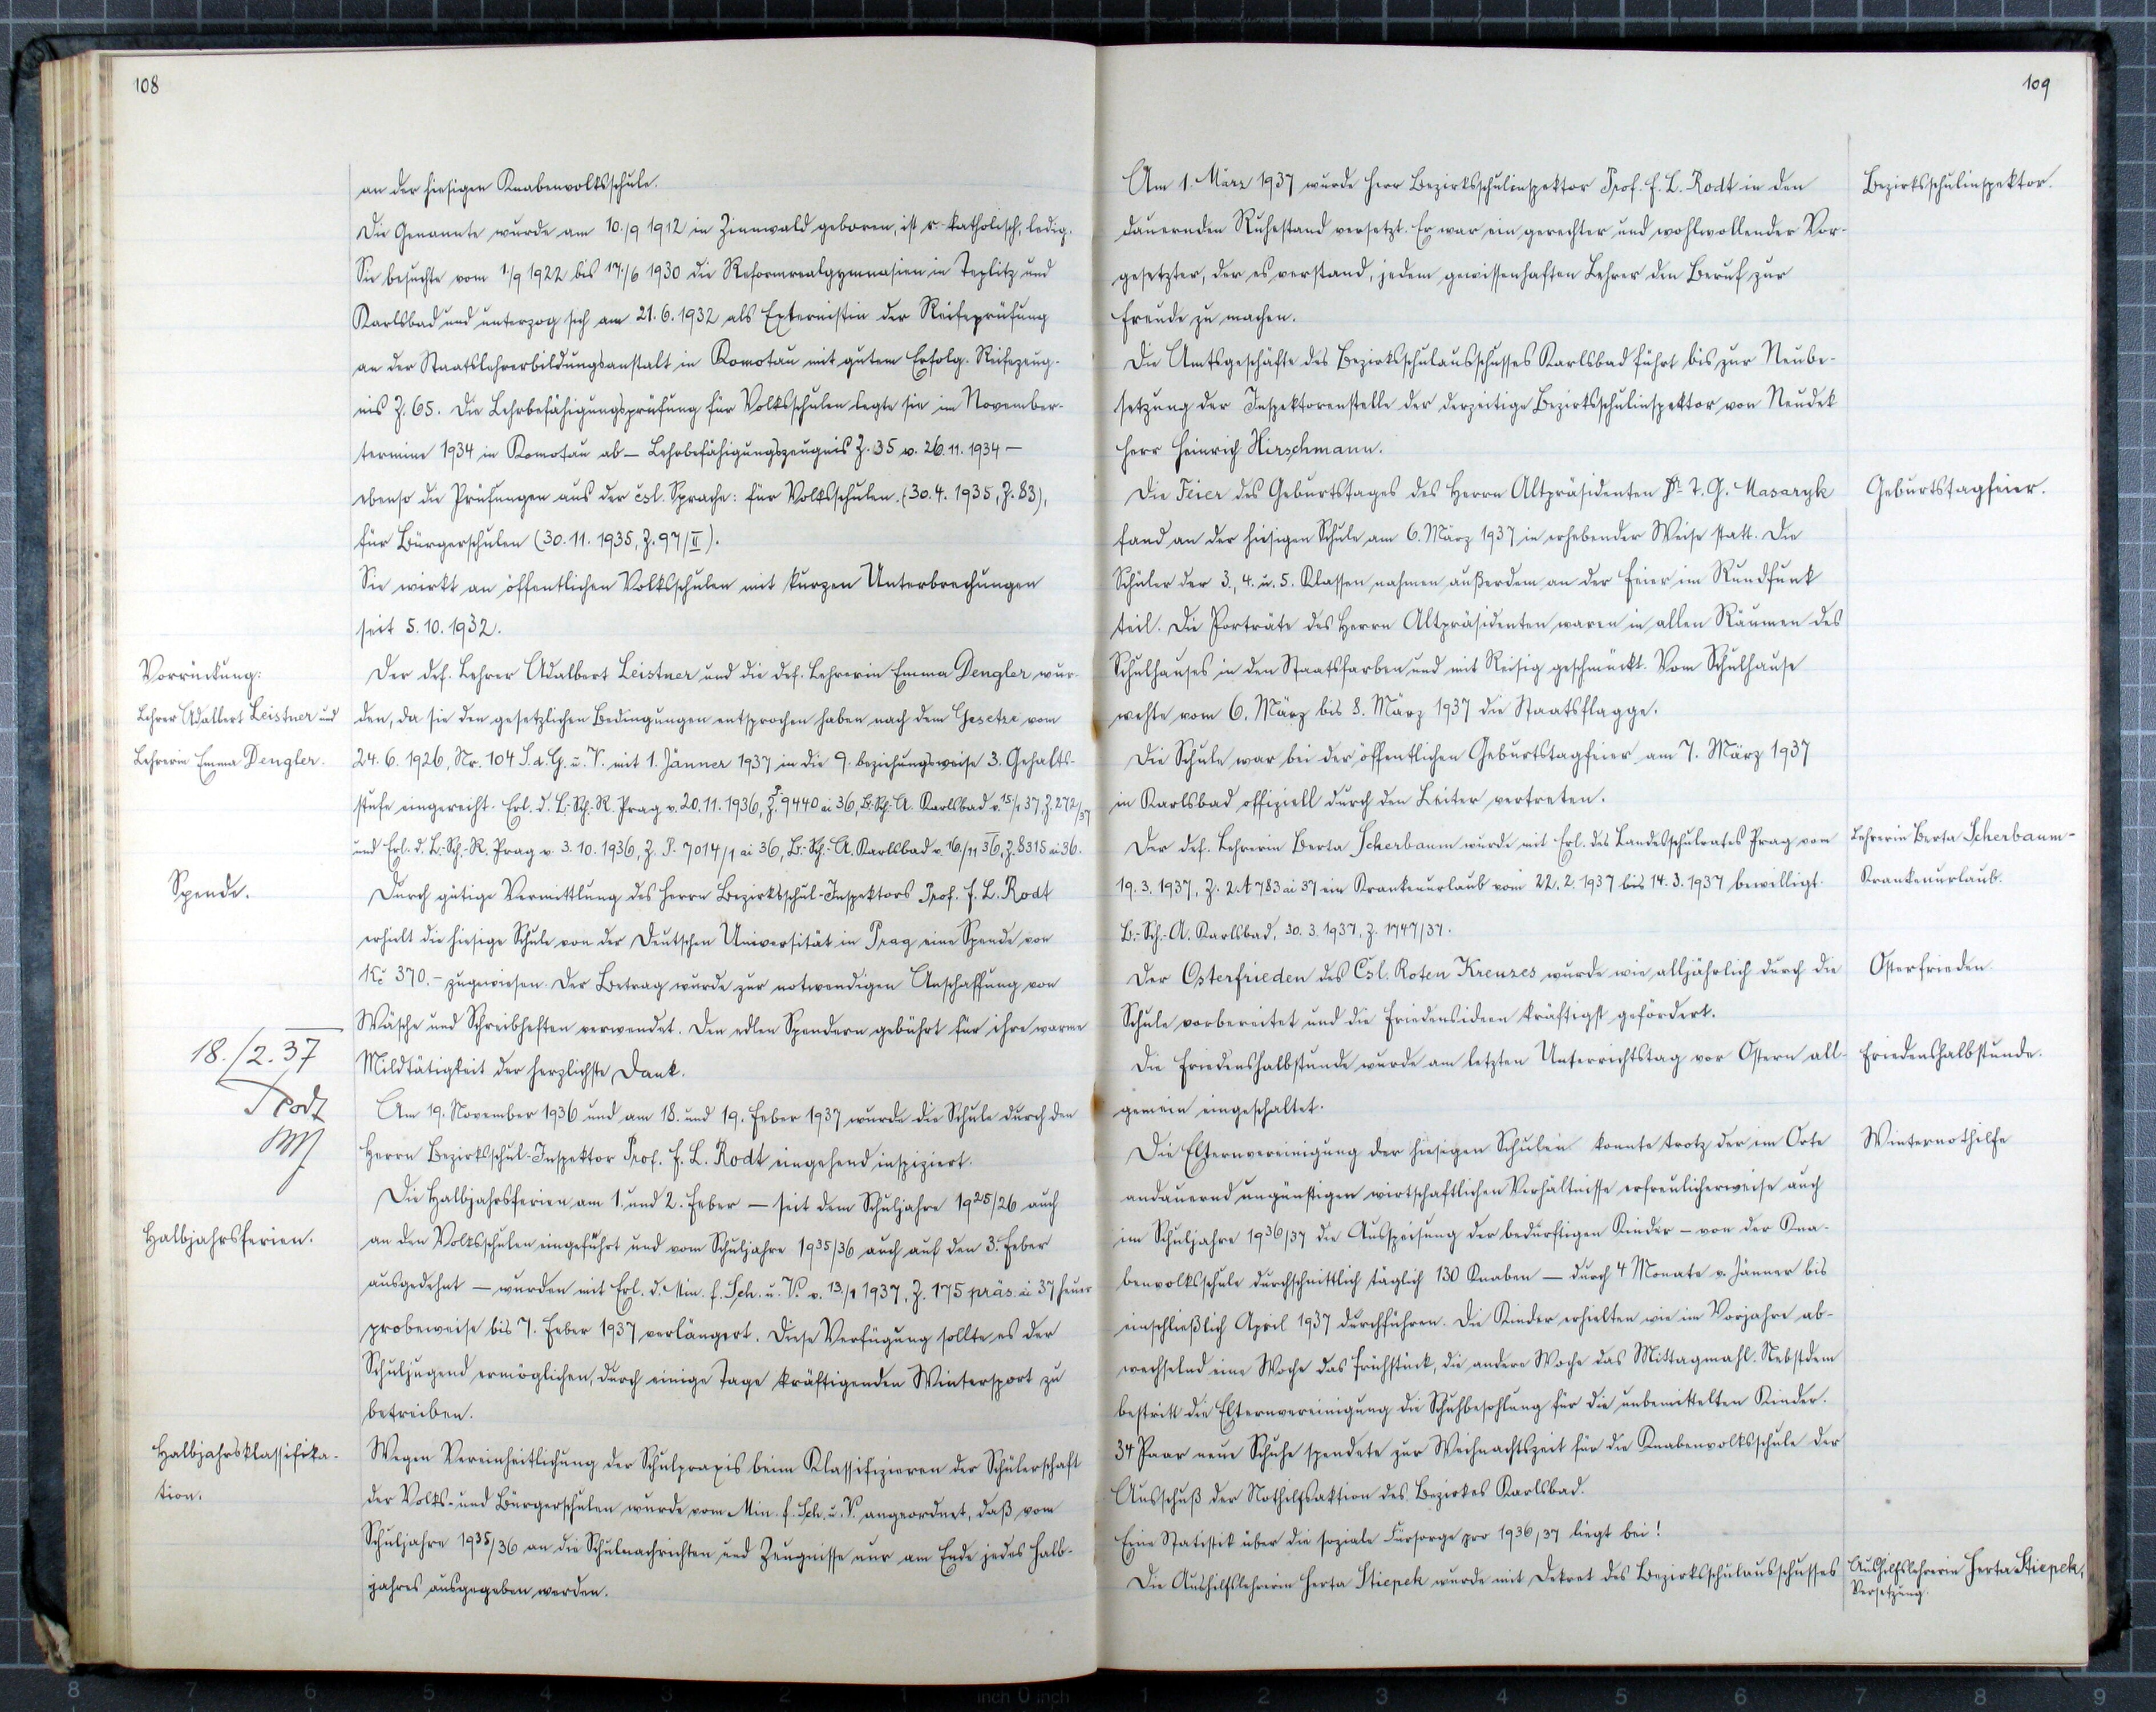 108
an der hiesigen Knabenvolksschule.
Die Genannte wurde am 10./9 1912 in Zinnwald geboren, ist r. katholisch, ledig.
Sie besuchte vom 1./9 1922 bis 17./6 1930 die Reformrealgymnasien in Teplitz und
Karlsbad und unterzog sich am 21.6.1932 als Externistin der Reifeprüfung
an der Staatslehrerbildungsanstalt in Komotau mit gutem Erfolg. Reifezeug-
nis Z. 65. Die Lehrbefähigungsprüfung für Volksschulen legte sie im November-
termine 1934 in Komotau ab — Lehrbefähigungszeugnis Z. 35 v. 26.11.1934 —
ebenso die Prüfungen aus der čsl. Sprache: für Volksschulen (30.4.1935, Z. 83),
für Bürgerschulen (30.11.1935, Z. 97/II).
Sie wirkt an öffentlichen Volksschulen mit kurzen Unterbrechungen
seit 5.10.1932.
Vorrückung:
Lehrer Adalbert Leistner und
Lehrerin Emma Dengler.
Der def. Lehrer Adalbert Leistner und die def. Lehrerin Emma Dengler wur-
den, da sie den gesetzlichen Bedingungen entsprochen haben nach dem Gesetze vom
24.6.1926, Nr. 104 S.d.G.u.V. mit 1. Jänner 1937 in die 9. beziehungsweise 3. Gehalts-
stufe eingereiht. Erl. d. L.-Sch.-R. Prag v. 20.11.1936, Z. 9440 ai 36, B.-Sch.-A. Karlsbad v. 15/1 37, Z. 272/37
und Erl. d. L.-Sch.-R. Prag v. 3.10.1936, Z. P. 7014/1 ai 36, B.-Sch.-A. Karlsbad v. 16./11 36, Z. 8315 ai 36.
Spende.
Durch gütige Vermittlung des Herrn Bezirksschul-Inspektors Prof. F. L. Rodt
erhielt die hiesige Schule von der Deutschen Universität in Prag eine Spende von
Kč 370.- zugewiesen. Der Betrag wurde zur notwendigen Anschaffung von
Wäsche und Schreibheften verwendet. Den edlen Spendern gebührt für ihre warme
Mildtätigkeit der herzlichste Dank.
18./2.37
Rodt
Am 19. November 1936 und am 18. und 19. Feber 1937 wurde die Schule durch den
Herrn Bezirksschul-Inspektor Prof. F. L. Rodt eingehend inspiziert.
Halbjahrsferien.
Die Halbjahrsferien am 1. und 2. Feber — seit dem Schuljahre 1925/26 auch
an den Volksschulen eingeführt und vom Schuljahre 1935/36 auch auf den 3. Feber
ausgedehnt — wurden mit Erl. d. Min. f. Sch. u. V. v. 13./1 1937, Z. 175 präs. ai 37 heuer
probeweise bis 7. Feber 1937 verlängert. Diese Verfügung sollte es der
Schuljugend ermöglichen, durch einige Tage kräftigenden Wintersport zu
betreiben.
Halbjahrsklassifika-
tion.
Wegen Vereinheitlichung der Schulpraxis beim Klassifizieren der Schülerschaft
der Volks- und Bürgerschulen wurde vom Min. f. Sch. u. V. angeordnet, daß vom
Schuljahre 1935/36 an die Schulnachrichten und Zeugnisse nur am Ende jedes Halb-
jahres ausgegeben werden.
109
Am 1. März 1937 wurde Herr Bezirksschulinspektor Prof. F. L. Rodt in den
dauernden Ruhestand versetzt. Er war ein gerechter und wohlwollender Vor-
gesetzter, der es verstand, jedem gewissenhaften Lehrer den Beruf zur
Freude zu machen.
Bezirksschulinspektor.
Die Amtsgeschäfte des Bezirksschulausschusses Karlsbad führt bis zur Neube-
setzung der Inspektorenstelle der derzeitige Bezirksschulinspektor von Neudek
Herr Heinrich Hirschmann.
Die Feier des Geburtstages des Herrn Altpräsidenten Dr. T. G. Masaryk
Geburtstagfeier.
fand an der hiesigen Schule am 6. März 1937 in erhebender Weise statt. Die
Schüler der 3., 4. u. 5. Klassen nahmen außerdem an der Feier im Rundfunk
teil. Die Porträte des Herrn Altpräsidenten waren in allen Räumen des
Schulhauses in den Staatsfarben und mit Reisig geschmückt. Vom Schulhause
wehte vom 6. März bis 8. März 1937 die Staatsflagge.
Die Schule war bei der öffentlichen Geburtstagfeier am 7. März 1937
in Karlsbad offiziell durch den Leiter vertreten.
Der def. Lehrerin Berta Scherbaum wurde mit Erl. des Landesschulrates Prag vom
19.3.1937, Z. 2.A 783 ai 37 ein Krankenurlaub vom 22.2.1937 bis 14.3.1937 bewilligt.
B.-Sch.-A. Karlsbad, 30.3.1937, Z. 1747/37.
Lehrerin Berta Scherbaum-
Krankenurlaub.
Der Osterfrieden des Čsl. Roten Kreuzes wurde wie alljährlich durch die
Osterfrieden.
Schule vorbereitet und die Friedensideen kräftigst gefördert.
Die Friedenshalbstunde wurde am letzten Unterrichtstag vor Ostern all-
Friedenshalbstunde.
gemein eingeschaltet.
Die Elternvereinigung der hiesigen Schulen konnte trotz der im Orte
Winternothilfe
andauernd ungünstigen wirtschaftlichen Verhältnisse erfreulicherweise auch
im Schuljahre 1936/37 die Ausspeisung der bedürftigen Kinder — von der Kna-
benvolksschule durchschnittlich täglich 130 Knaben — durch 4 Monate v. Jänner bis
einschließlich April 1937 durchführen. Die Kinder erhielten wie im Vorjahre ab-
wechselnd eine Woche das Frühstück, die andere Woche das Mittagmahl. Nebstdem
bestritt die Elternvereinigung die Schuhbesohlung für die unbemittelten Kinder.
34 Paar neue Schuhe spendete zur Weihnachtszeit für die Knabenvolksschule der
Ausschuß der Nothilfsaktion des Bezirkes Karlsbad.
Eine Statistik über die soziale Fürsorge pro 1936/37 liegt bei!
Die Aushilfslehrerin Herta Stiepek wurde mit Dekret des Bezirksschulausschusses
Aushilfslehrerin Herta Stiepek,
Versetzung.
8 7 6 5 4 3 2 1 inch 0 inch 1 2 3 4 5 6 7 8 9